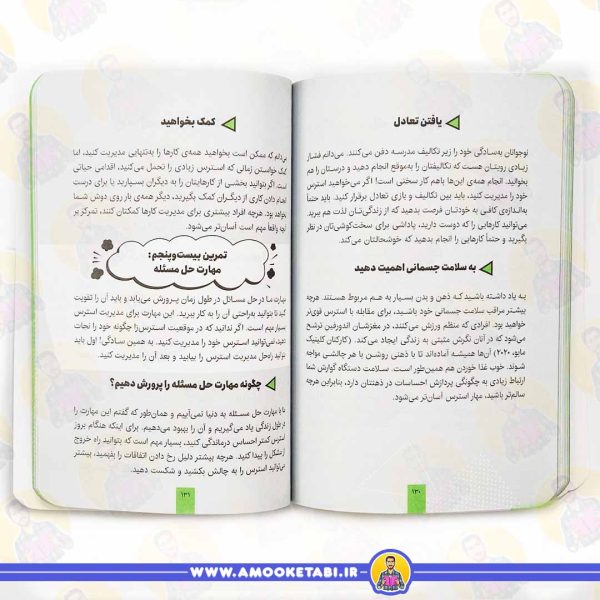 یافتن تعادل
نوجوانان به‌سادگی خود را زیر تکالیف مدرسه دفن می‌کنند. می‌دانم فشار
زیادی رویتان هست که تکالیفتان را به‌موقع انجام دهید و درستان را هم
بخوانید. انجام همه‌ی این‌ها باهم کار سختی است! اگر می‌خواهید استرس
خود را مدیریت کنید، باید بین تکالیف و بازی تعادل برقرار کنید. باید
به‌اندازه‌ی کافی به خودتان فرصت بدهید که از زندگی‌تان لذت هم ببرید.
می‌توانید کارهایی را که دوست دارید، پاداشی برای سخت‌کوشی‌تان در نظر
بگیرید و حتماً کارهایی را انجام بدهید که خوشحالتان می‌کند.
به سلامت جسمانی اهمیت دهید
به یاد داشته باشید که ذهن و بدن بسیار به هم مربوط هستند. هرچه
بیشتر مراقب سلامت جسمانی خود باشید، برای مقابله با استرس قوی‌تر
خواهید بود. افرادی که منظم ورزش می‌کنند، در مغزشان اندورفین ترشح
می‌شود که در آنان نگرش مثبتی به زندگی ایجاد می‌کند. (کارکنان کلینیک
مایو، ۲۰۲۰) آن‌ها همیشه آماده‌اند تا با ذهنی روشن با هر چالشی مواجه
شوند. خوب غذا خوردن هم همین‌طور است. سلامت دستگاه گوارش شما
ارتباط زیادی به چگونگی پردازش احساسات در ذهنتان دارد، بنابراین هرچه
سالم‌تر باشید، مهار استرس آسان‌تر می‌شود.
۱۳۰
کمک بخواهید
می‌دانم که ممکن است بخواهید همه‌ی کارها را به‌تنهایی مدیریت کنید، اما
کمک خواستن زمانی که استرس زیادی را تحمل می‌کنید، اقدامی حیاتی
است. اگر بتوانید بخشی از کارهایتان را به دیگران بسپارید یا برای درست
انجام دادن کاری از دیگران کمک بگیرید، دیگر همه‌ی بار روی دوش شما
نخواهد بود. هرچه افراد بیشتری برای مدیریت کارها کمکتان کنند، تمرکز بر
آنچه واقعاً مهم است آسان‌تر می‌شود.
تمرین بیست‌وپنجم:
مهارت حل مسئله
مهارت ما در حل مسائل در طول زمان پرورش می‌یابد و باید آن را تقویت
کنید تا بتوانید به‌راحتی آن را به کار ببرید. این مهارت برای مدیریت استرس
بسیار مهم است. اگر ندانید که در موقعیت استرس‌زا چگونه خود را نجات
دهید، نمی‌توانید استرس خود را مدیریت کنید. به همین سادگی! اول باید
بتوانید راه‌حل مدیریت استرس را بیابید و بعد آن را مدیریت کنید.
چگونه مهارت حل مسئله را پرورش دهیم؟
ما با مهارت حل مسئله به دنیا نمی‌آییم و همان‌طور که گفتم این مهارت را
در طول زندگی یاد می‌گیریم و آن را بهبود می‌دهیم. برای اینکه هنگام بروز
استرس کمتر احساس درماندگی کنید، بسیار مهم است که بتوانید راه خروج
از مشکل را پیدا کنید. هرچه بیشتر دلیل رخ دادن اتفاقات را بفهمید، بیشتر
می‌توانید استرس را به چالش بکشید و شکست دهید.
۱۳۱
WWW.AMOOKETABI.IR